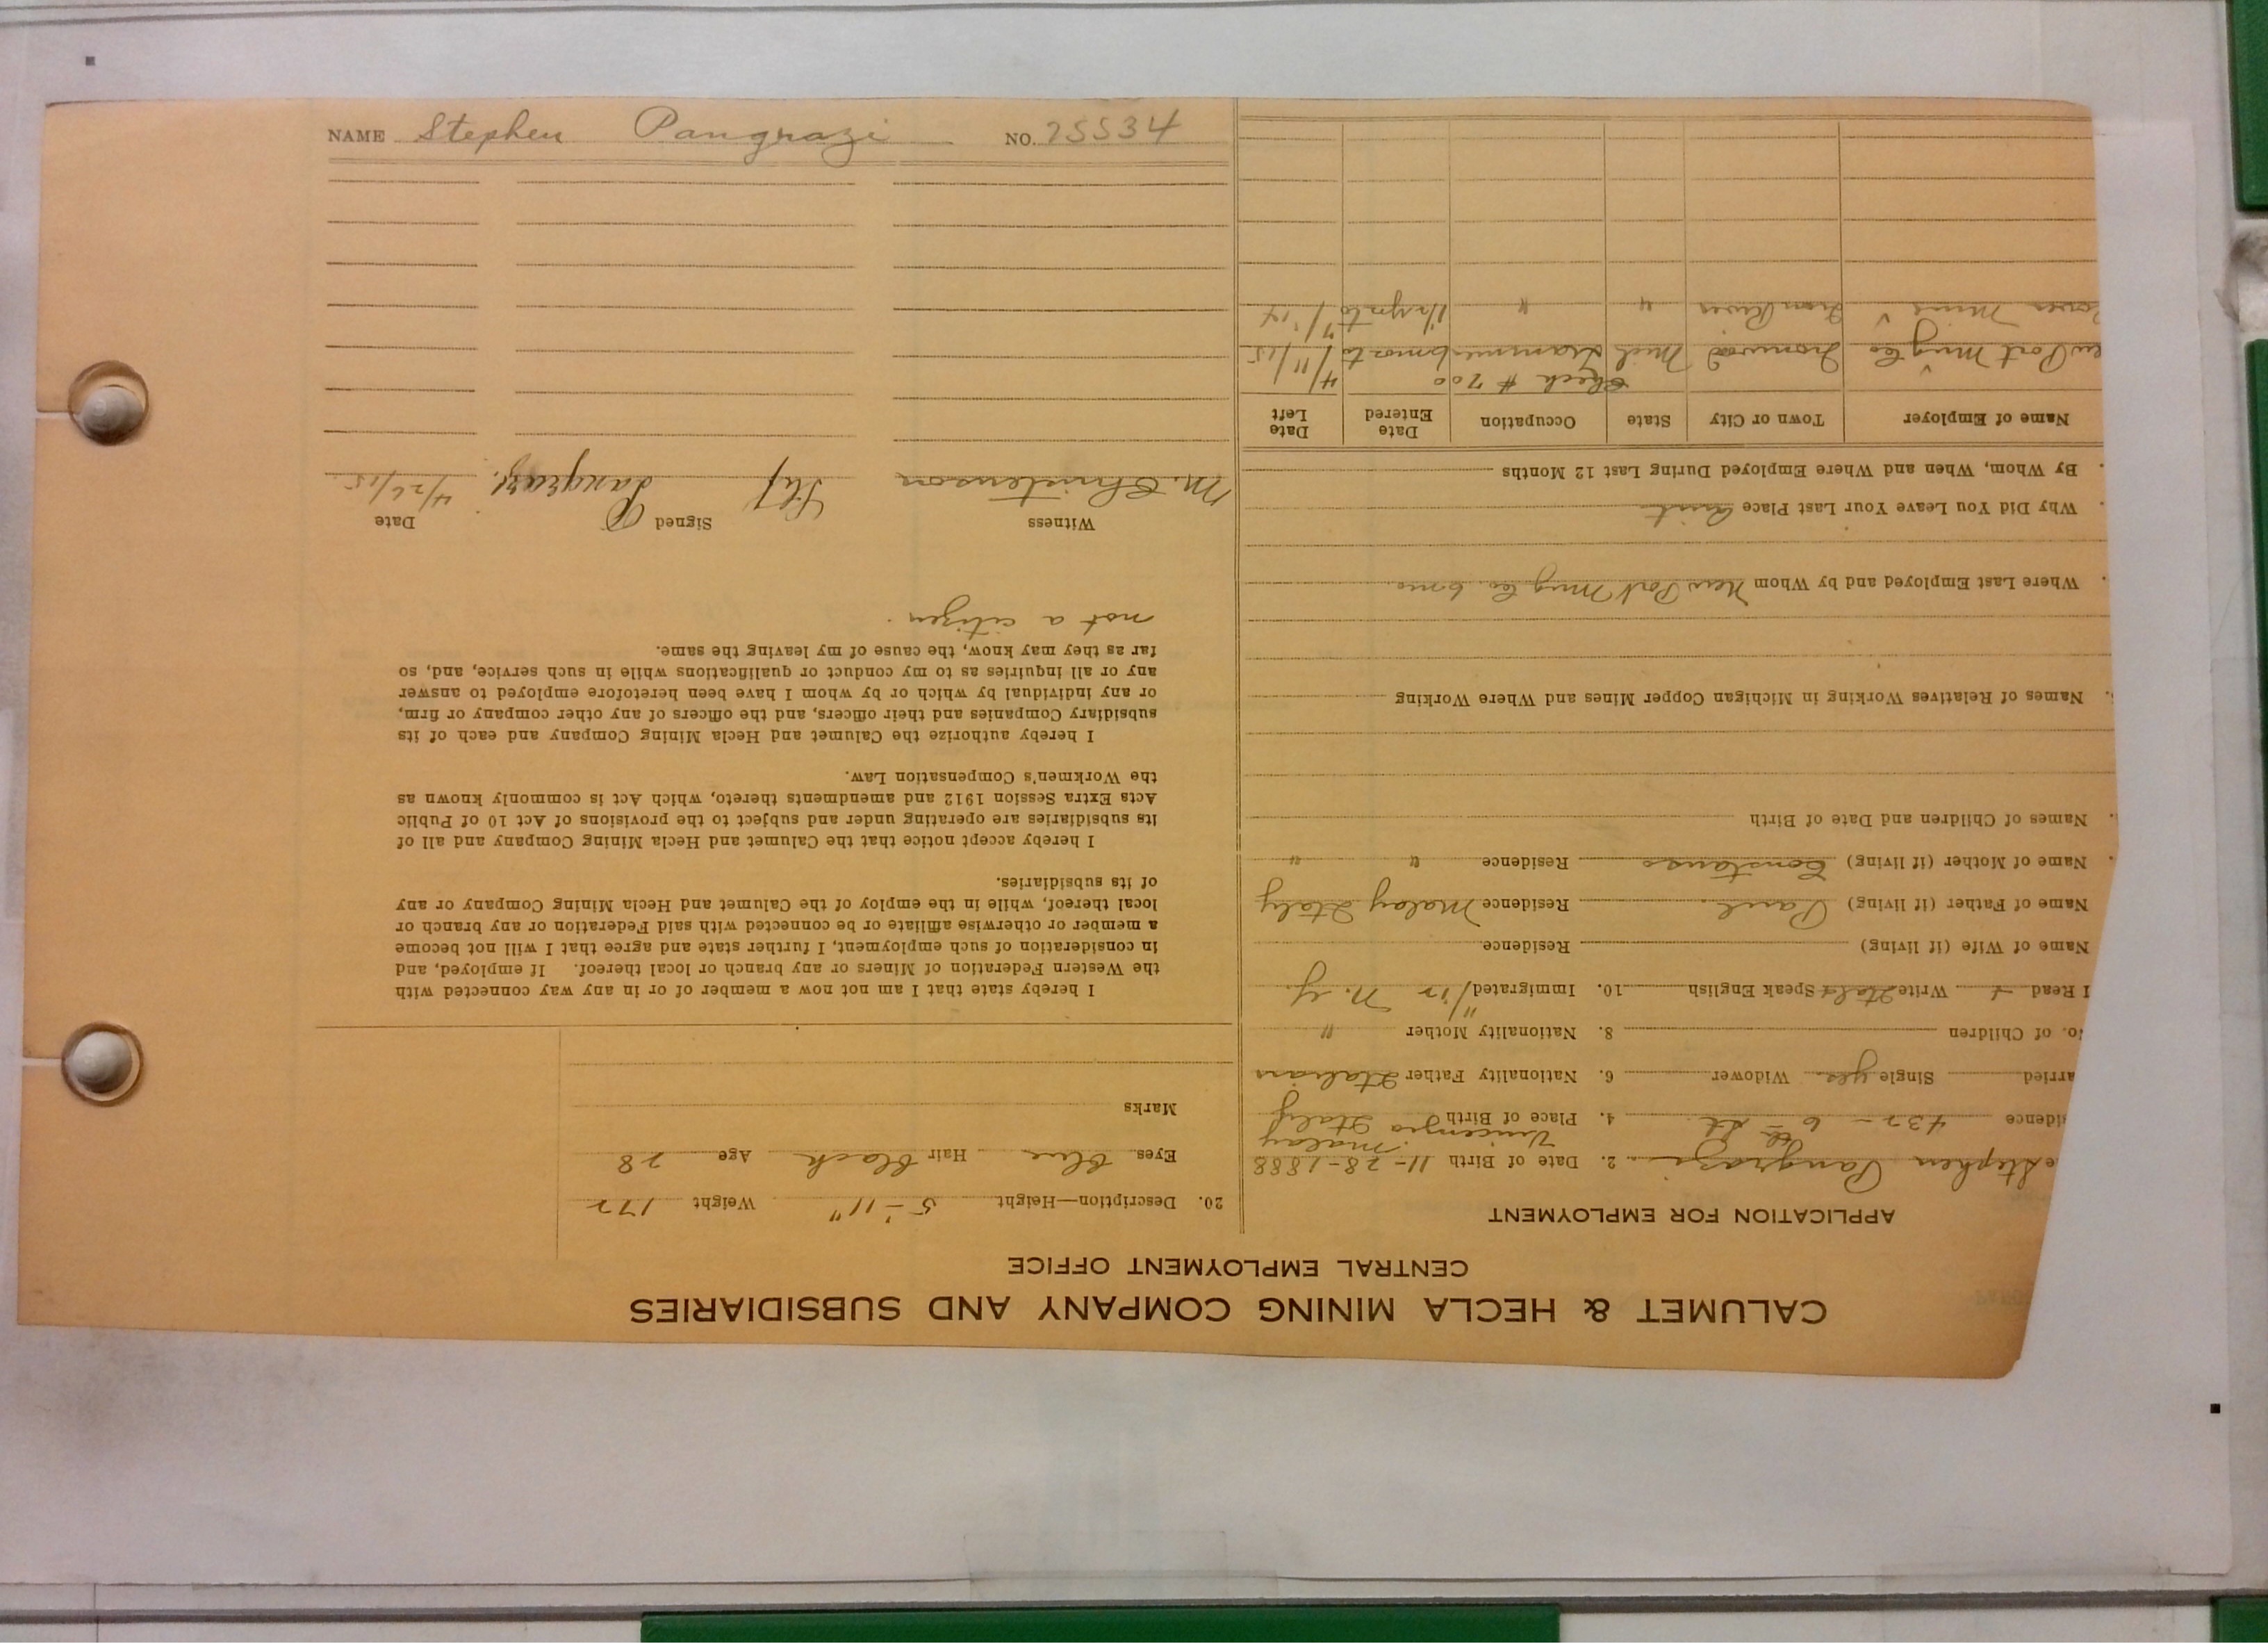 NAME Stephen Pangrazi NO. 25534
CALUMET & HECLA MINING COMPANY AND SUBSIDIARIES
CENTRAL EMPLOYMENT OFFICE
APPLICATION FOR EMPLOYMENT
e Stephen Pangrazi 2. Date of Birth 11-28-1888
idence 432 - 6th St. 4. Place of Birth Malay Italy
arried Single yes. Widower 6. Nationality Father Italian
o. of Children 8. Nationality Mother "
I Read Write Ital Speak English 10. Immigrated 11/12 N. Y.
Name of Wife (if living) Residence
Name of Father (if living) Paul. Residence Malay Italy
Name of Mother (if living) Residence " "
. Names of Children and Date of Birth
. Names of Relatives Working in Michigan Copper Mines and Where Working
. Where Last Employed and by Whom New Port Mng Co. 6 mos
. Why Did You Leave Your Last Place Quit
. By Whom, When and Where Employed During Last 12 Months
Name of Employer Town or City State Occupation Date Entered Date Left
Check # 700
ew Port Mng Co Ironwood Mich Trammer 6 mos to 4/11/15
Mine Iron River " " 1/2 yr to
20. Description—Height 5'-11" Weight 172
Eyes Blue Hair Black Age 28
Marks
I hereby state that I am not now a member of or in any way connected with
the Western Federation of Miners or any branch or local thereof. If employed, and
in consideration of such employment, I further state and agree that I will not become
a member or otherwise affiliate or be connected with said Federation or any branch or
local thereof, while in the employ of the Calumet and Hecla Mining Company or any
of its subsidiaries.
I hereby accept notice that the Calumet and Hecla Mining Company and all of
its subsidiaries are operating under and subject to the provisions of Act 10 of Public
Acts Extra Session 1912 and amendments thereto, which Act is commonly known as
the Workmen's Compensation Law.
I hereby authorize the Calumet and Hecla Mining Company and each of its
subsidiary Companies and their officers, and the officers of any other company or firm,
or any individual by which or by whom I have been heretofore employed to answer
any or all inquiries as to my conduct or qualifications while in such service, and, so
far as they may know, the cause of my leaving the same.
not a citizen.
Witness Signed Date
M. Christenson Stef Pangrazi. 4/26/15.